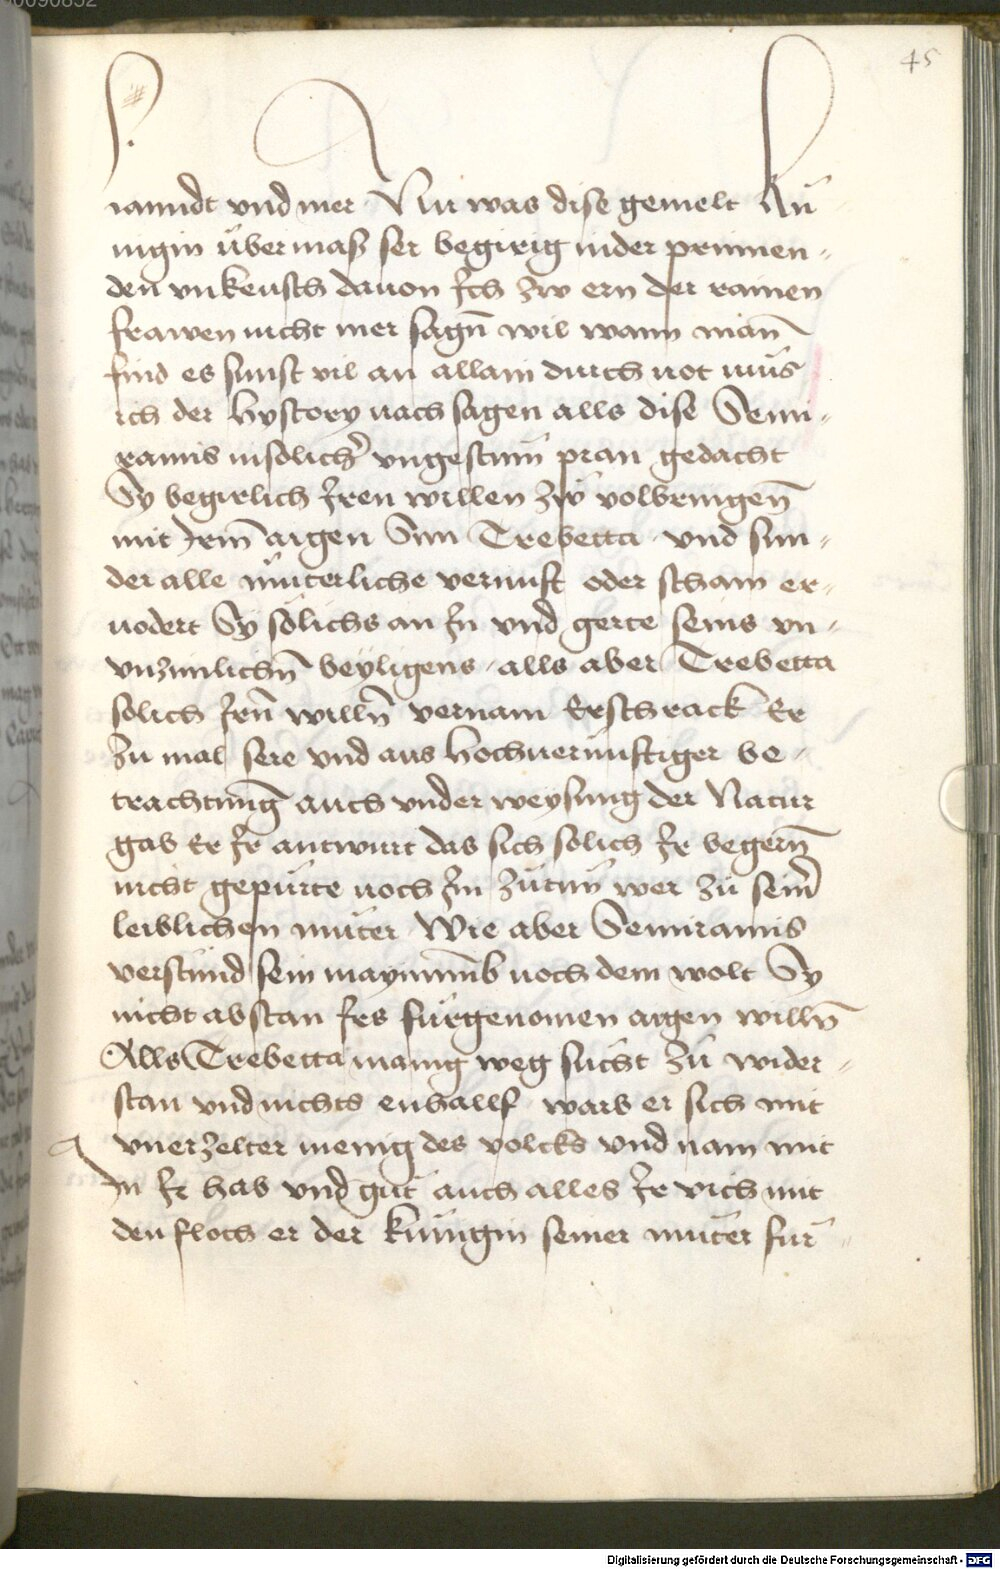 00090852
45
ramidt vnd mer Nu was dise gemelt kü
nigin übermaß ser begirig in der prinnen-
den vnkeusch dauon Ich zw ern der rainen
frawen nicht mer sagn̄ wil wann man̄
find es sunst vil an allain durch not mus
ich der hystory nach sagen alls dise Semi-
ramis in sölicher vngestüm pran gedacht
Sy begirlich Iren willen zw volbringen̄
mit Irm̄ aigen Sun Trebetta vnd sun-
der alle müterliche vernuft oder scham er-
uodert Sy sölichs an In vnd gerte seins vn-
vnzimlichn̄ beyligens alls aber Trebetta
solich Irn̄ willn̄ vernam Erschrack Er
zu mal sere vnd aus hochuernuftiger be-
trachtung auch vnderweysung der Natur
gab Er Ir antwurt das sich solich Ir begern̄
nicht gepürte noch Im zütün wer zü seinr̄
leiblichen müter Wie aber Semiramis
verstünd sein maynumb noch dem wolt Sy
nicht abstan Irs fürgenomen aigen willn̄
Alls Trebetta manig weg sucht zü wider-
stan vnd nichts enhallf warb er sich mit
vnerzelter menig des volcks vnd nam mit
In Ir hab vnd güt auch alles Ir vich mit
den floch er der künigin seiner müter für
Digitalisierung gefördert durch die Deutsche Forschungsgemeinschaft - DFG